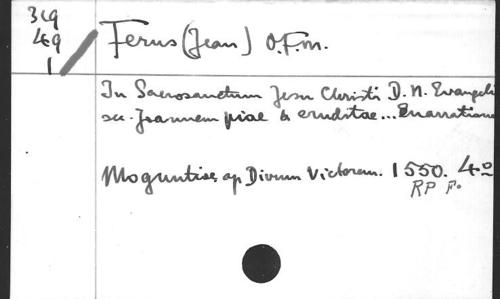 319
49
1
Ferus (Jean) O.F.M.
In Sacrosanctum Jesu Christi D. N. Evangeli
sec. Joannem piae & eruditae... Enarratione
Moguntiae, ap Divum Victorem. 1550. 4º
RP F.